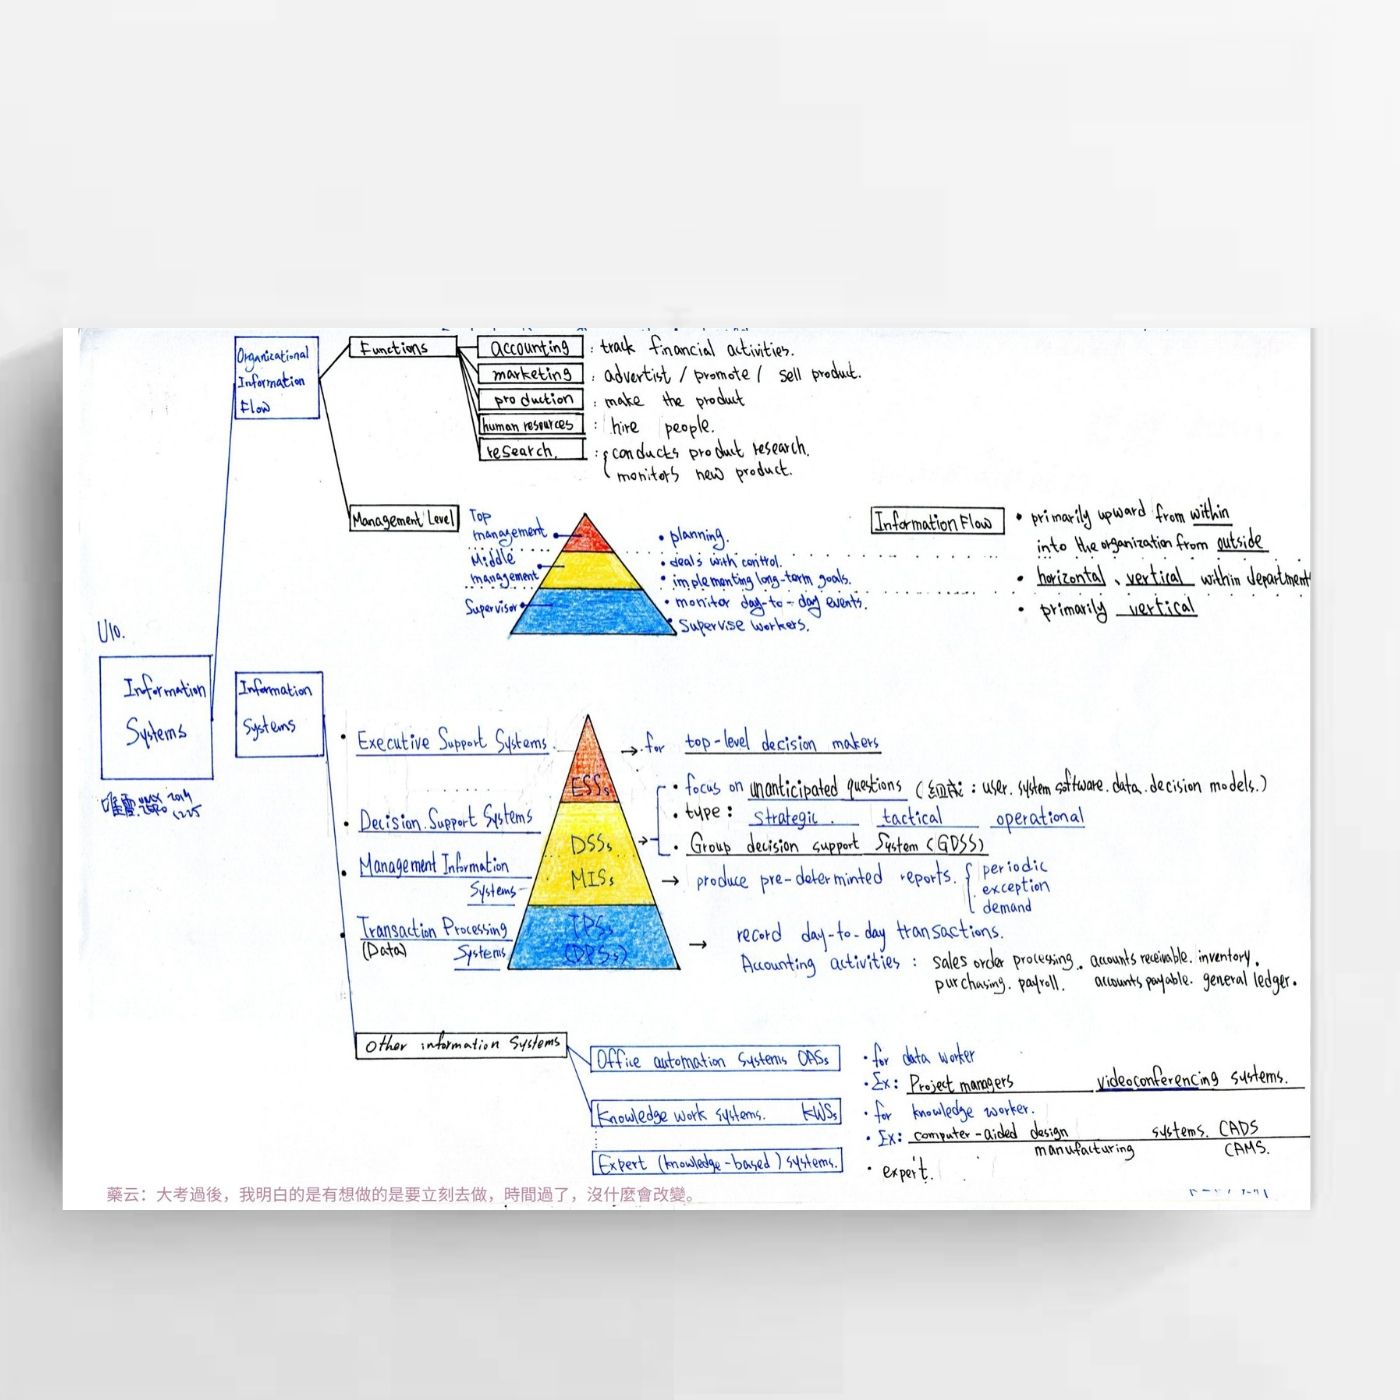 Organizational
Information
Flow
Functions
accounting : track financial activities.
marketing : advertist / promote / sell product.
production : make the product
human resources : hire people.
research. : conducts product research.
monitors new product.
Management Level
Top
management
Middle
management
Supervisor
• planning.
• deals with control.
• implementing long-term goals.
• monitor day-to-day events.
• Supervise workers.
Information Flow
• primarily upward from within
into the organization from outside
• horizontal、vertical within department
• primarily vertical
U10.
Information
Systems
2014
1225
Information
Systems
• Executive Support Systems.
ESSs
→ for top-level decision makers
• Decision Support Systems
DSSs
• focus on unanticipated questions (組成: user. system software. data. decision models.)
• type: strategic. tactical operational
• Group decision support System (GDSS)
• Management Information
Systems
MISs
→ produce pre-determinted reports. { periodic
exception
demand
• Transaction Processing
(Data) Systems
TPSs
(DPSs)
→ record day-to-day transactions.
Accounting activities : sales order processing. accounts receivable. inventory.
purchasing. payroll. accounts payable. general ledger.
Other information Systems
Office automation Systems OASs
• for data worker
• Ex: Project managers videoconferencing systems.
Knowledge work systems. KWSs
• for knowledge worker.
• Ex: computer-aided design systems. CADS
manufacturing CAMS.
Expert (knowledge-based) systems.
• expert.
藥云：大考過後，我明白的是有想做的是要立刻去做，時間過了，沒什麼會改變。